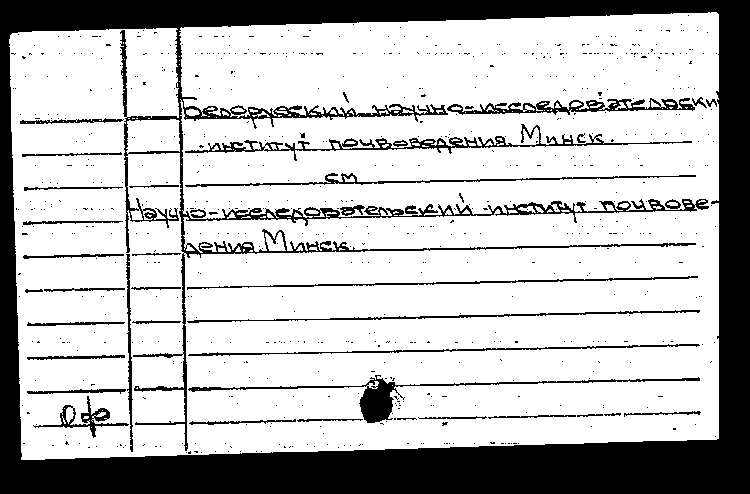 Белорусский научно-исследовательский
институт почвоведения. Минск.
см
Научно-исследовательский институт почвове-
дения. Минск.
Оф